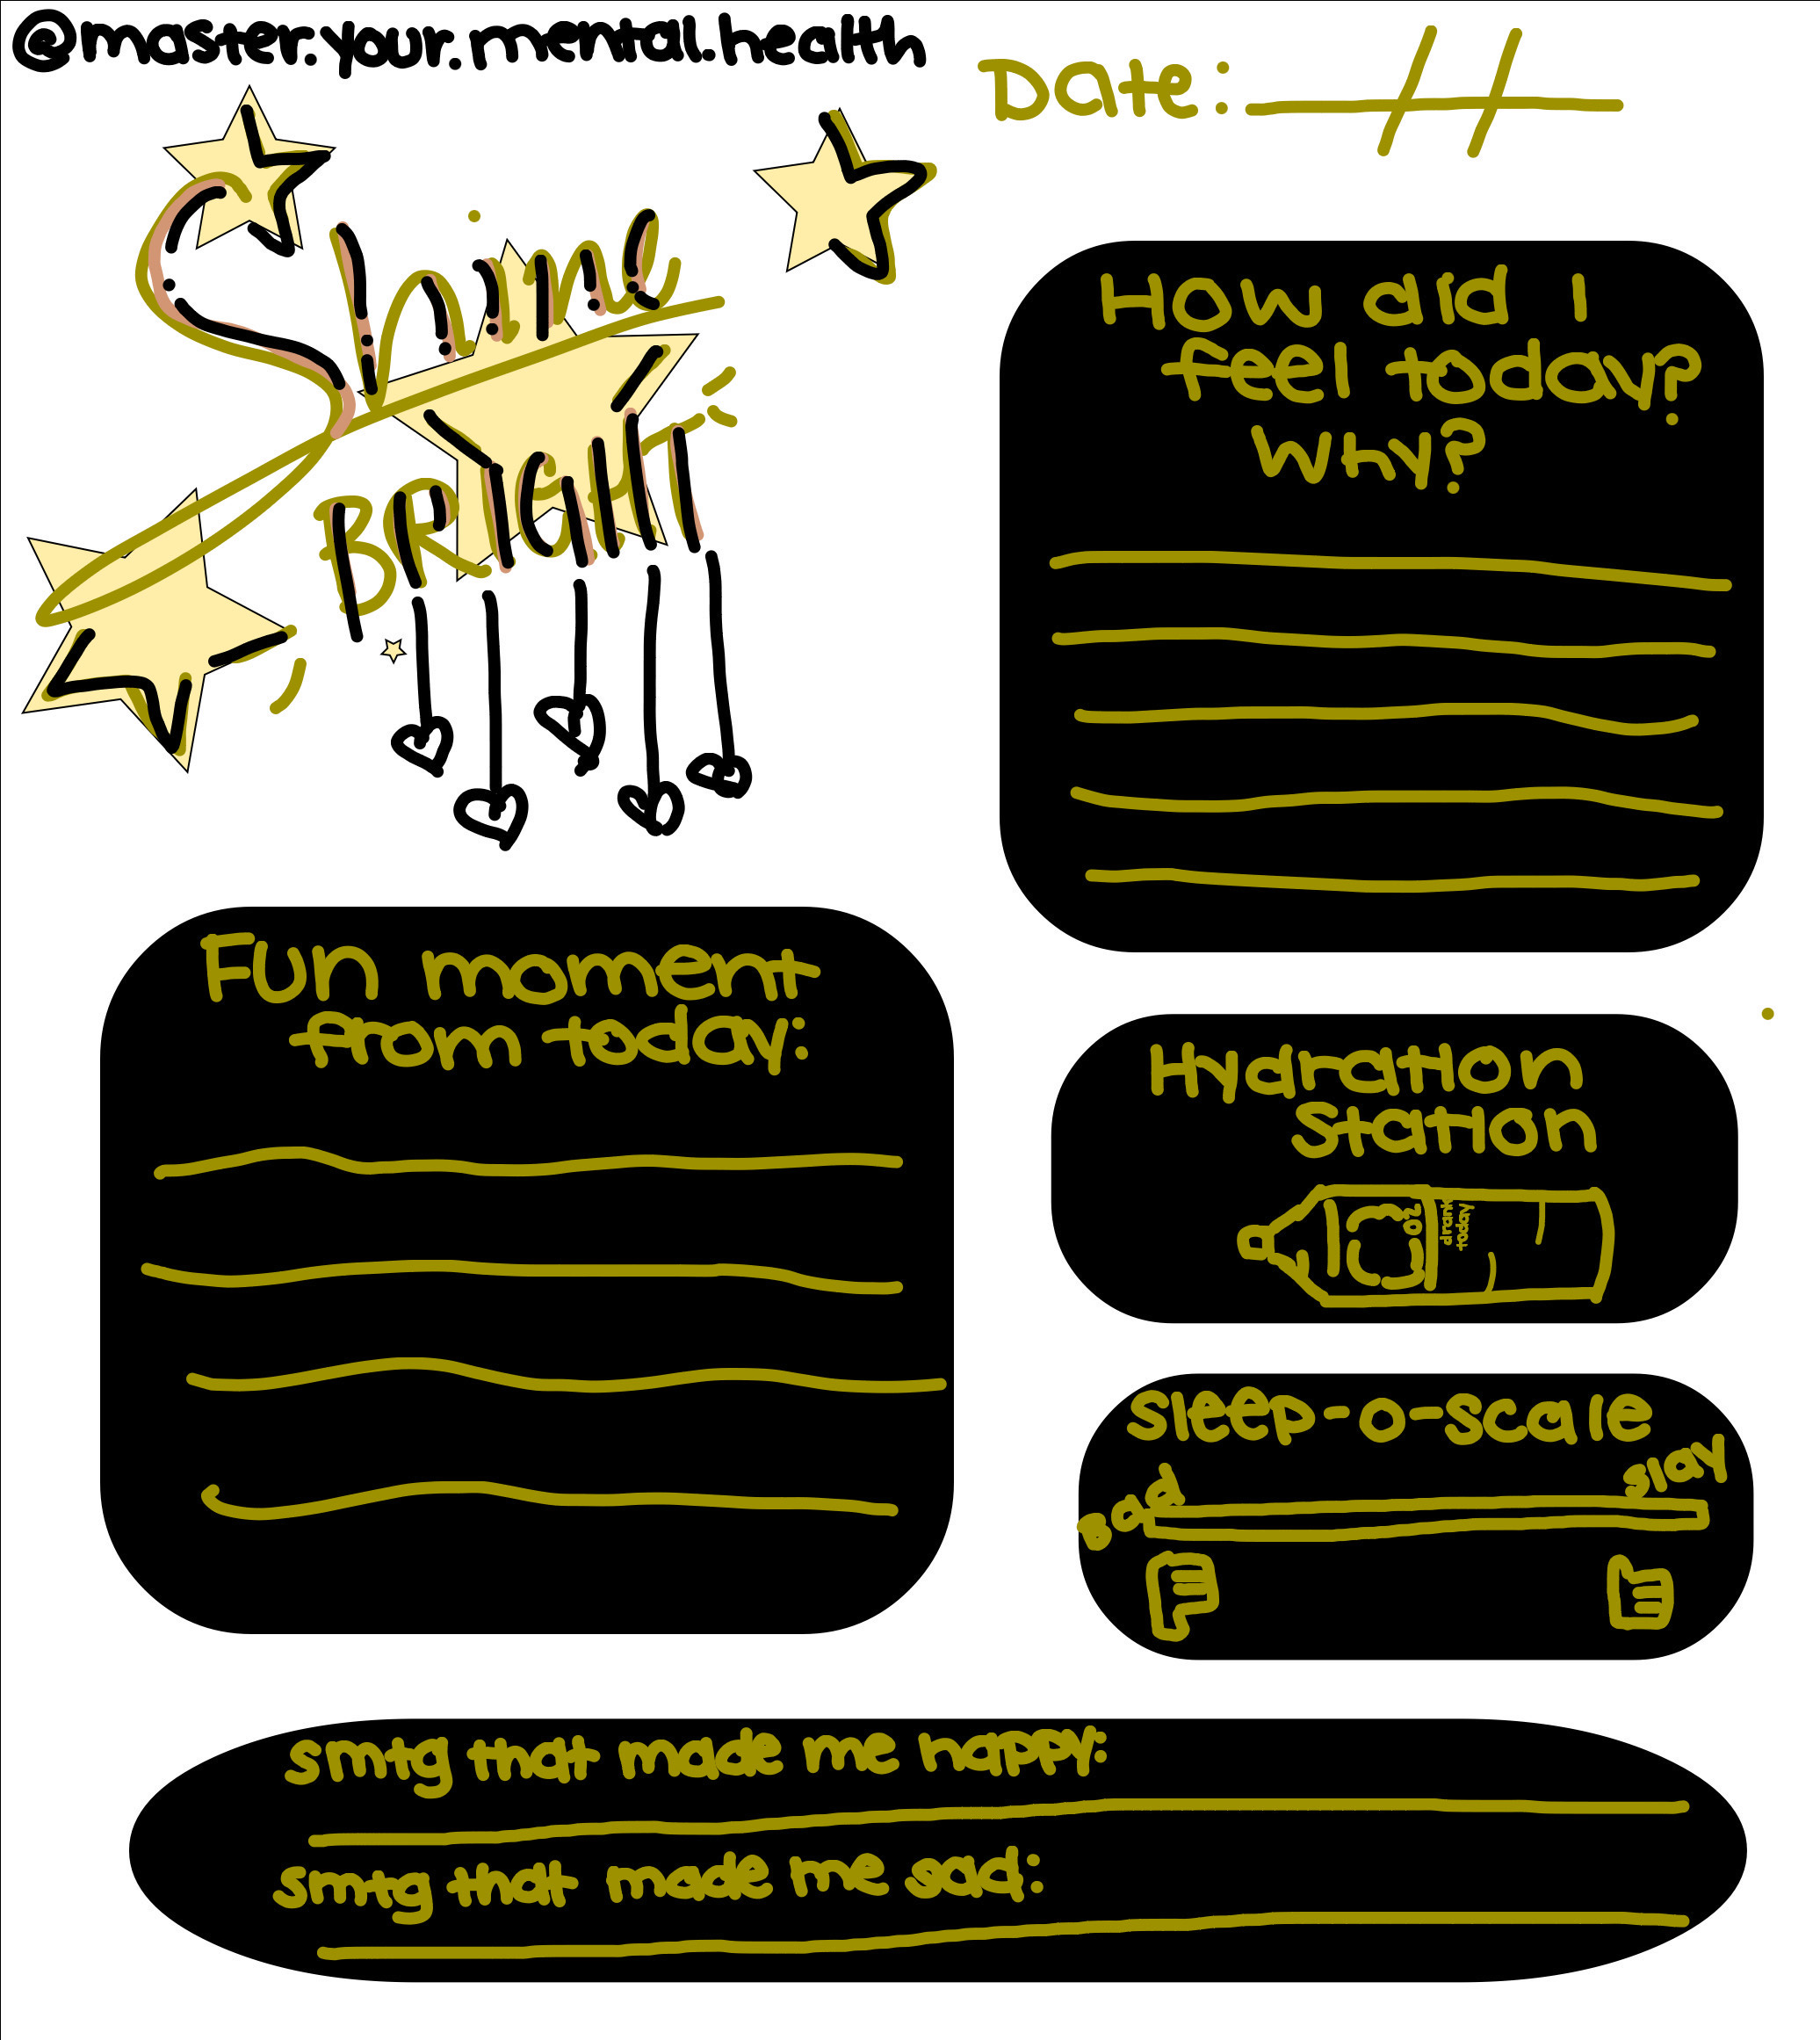 @master.your.mental.health
Date: / /
SHINE
BRIGHT
How did I
feel today?
Why?
Fun moment
from today:
Hydration
station
drank
today
sleep-o-scale
Bad
slay
smtg that made me happy:
smtg that made me sad: